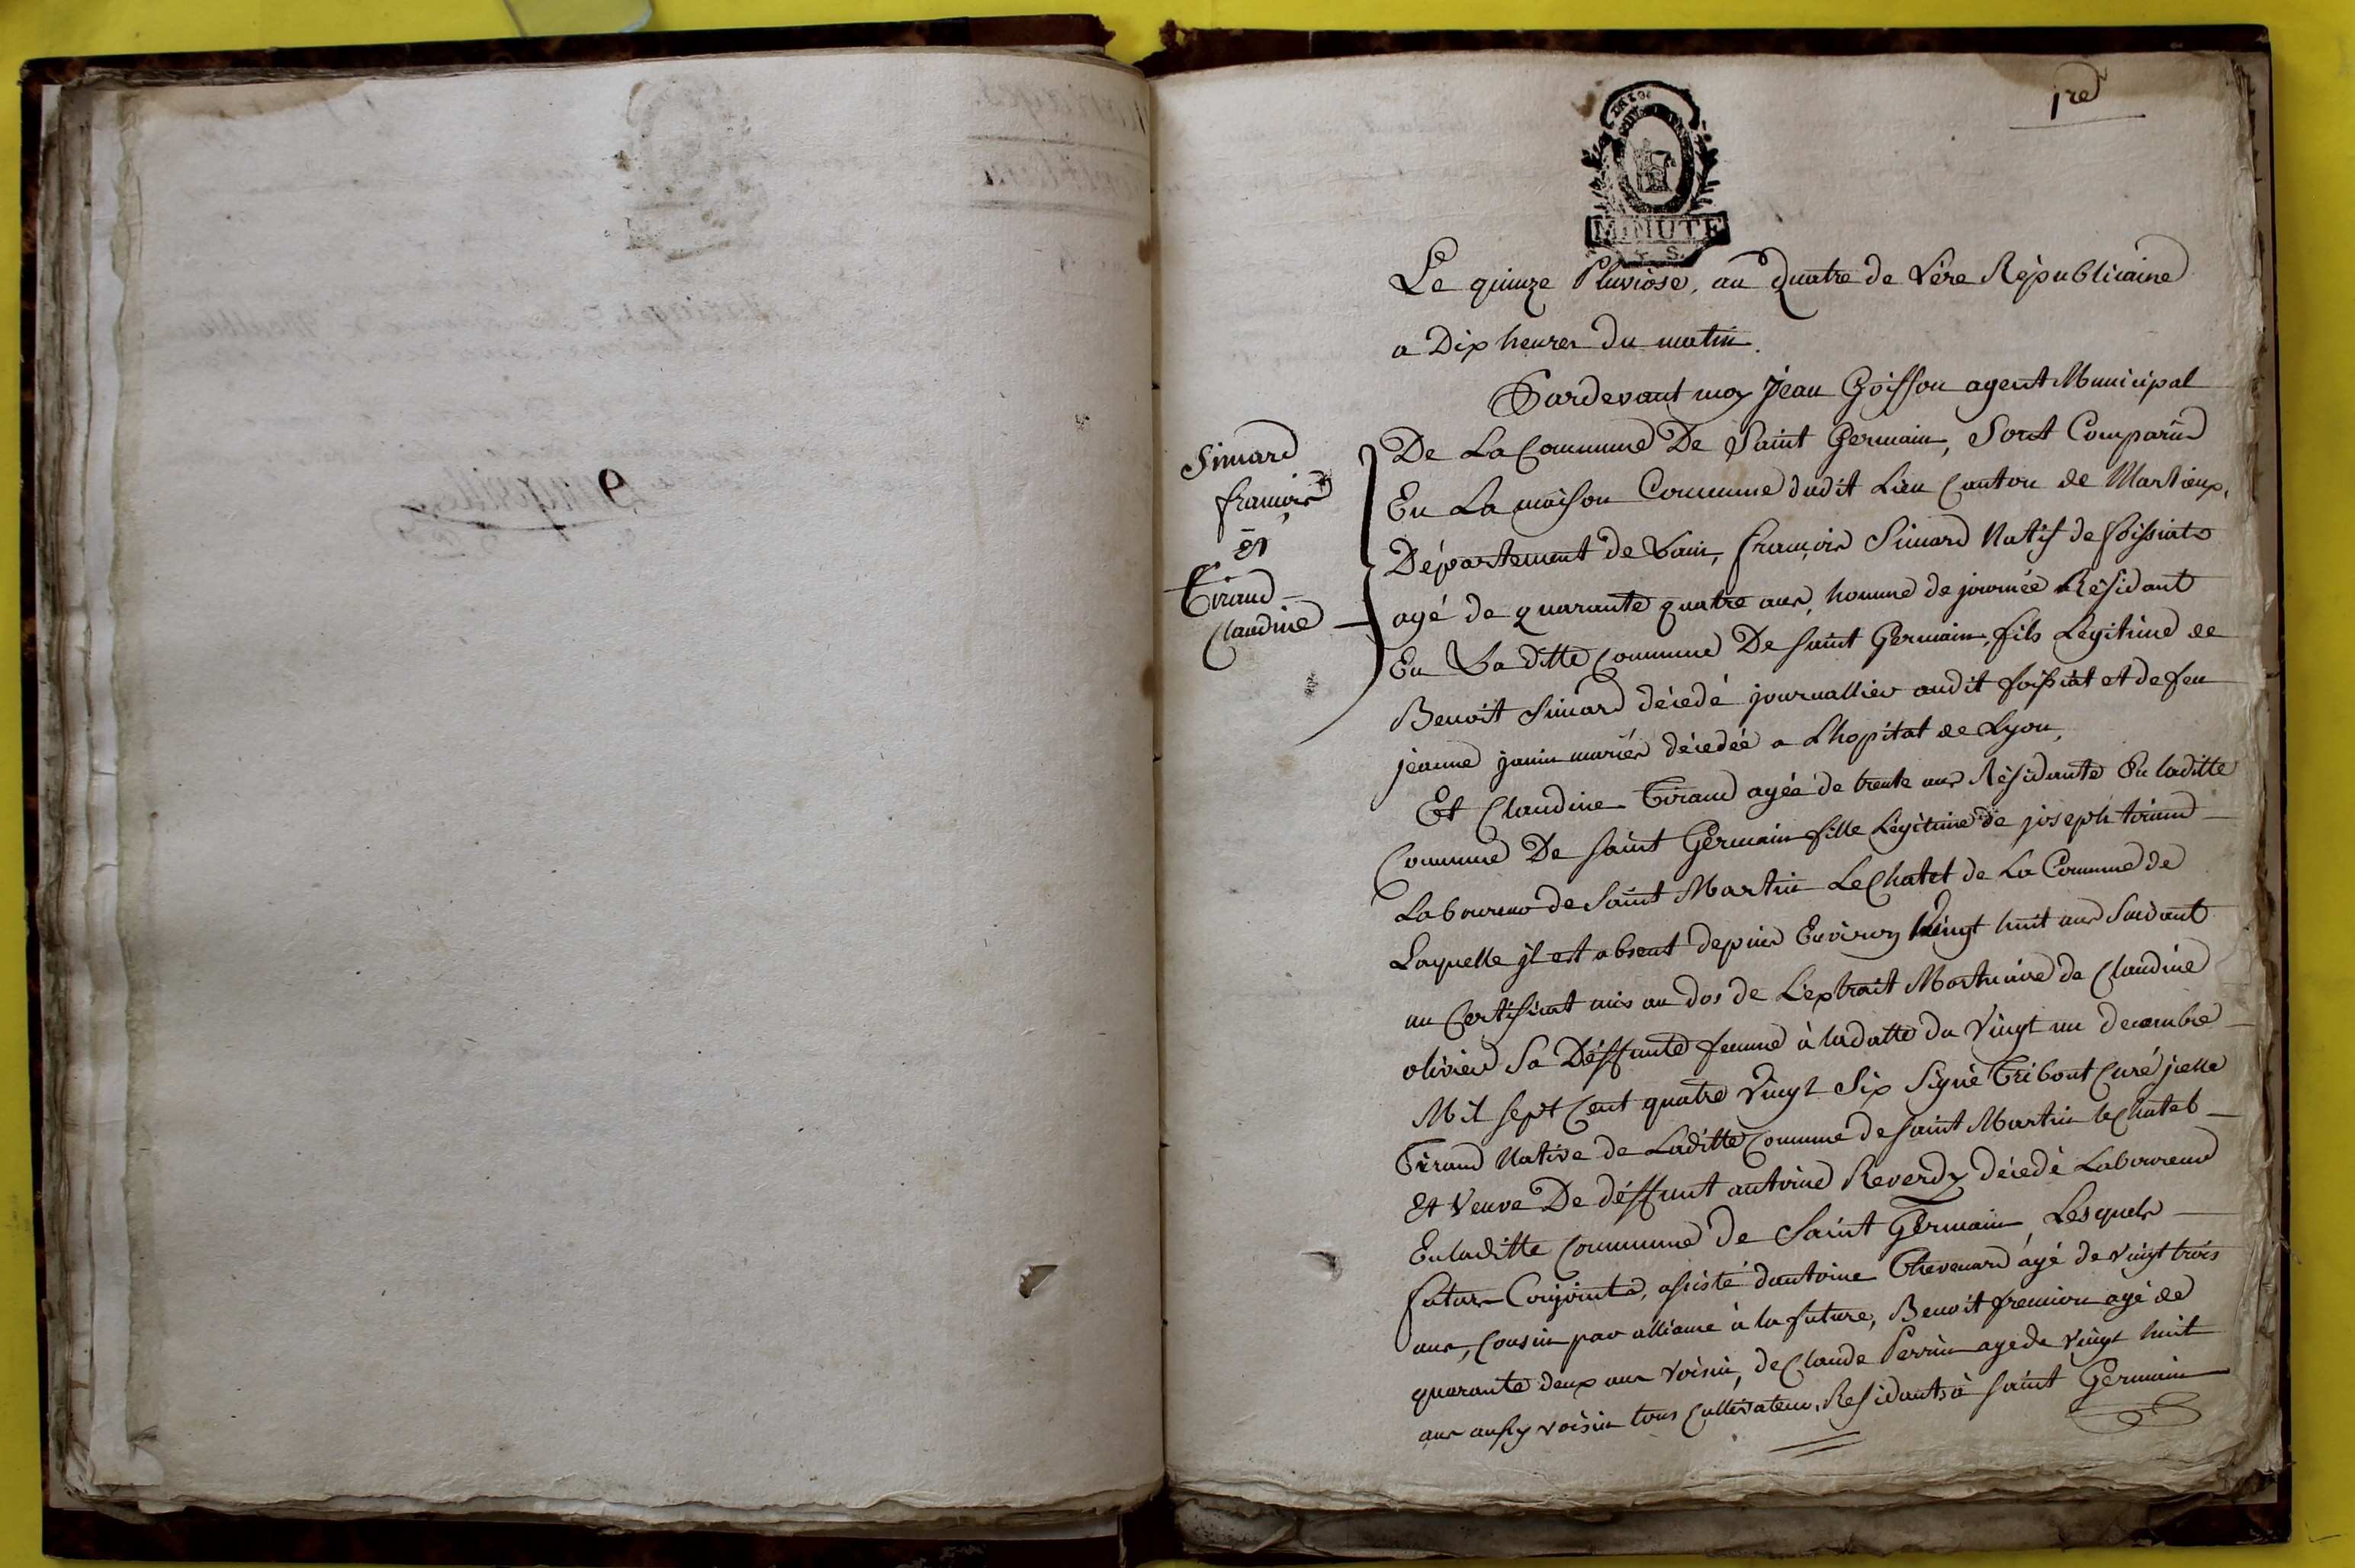 1re
MINUTE
Le quinze Pluviose, an quatre de L'ère Républicaine
a Dix heures du matin.
Pardevant moy Jean Goiffon agent Municipal
De La Commune De Saint Germain, Sont Comparus
En La maison Commune dudit Lieu Canton de Marlieux,
Département de L'ain, françois Simard Natif de foissiat
agé de quarante quatre ans, homme de journée Résidant
En La ditte Commune De saint Germain, fils Légitime de
Benoit Simard décedé journallier audit foissiat et de feu
jeanne janin mariés décedée a L'hopital de Lyon,
Et Claudine Tiraud agée de trente ans Résidante En laditte
Commune De saint Germain fille Légitime de joseph tiraud
Laboureur de Saint Martin Le Chatel de La Commune de
Laquelle il est absent depuis Environ Vingt huit ans Suivant
un Certificat mis au dos de L'extrait Mortuaire de Claudine
olivier Sa Déffunte femme à la datte du Vingt un decembre
Mil sept Cent quatre Vingt Six Signé Tribout Curé, jcelle
Tiraud Native de Laditte Commune de saint Martin le Chatel
Et Veuve De déffunt antoine Reverdy décedé Laboureur
En laditte Commune de Saint Germain, Lesquels
futurs Conjoints, assisté d'antoine Thevenard agé de vingt trois
ans, Cousin par alliance à la future, Benoit fremion agé de
quarante deux ans voisin, de Claude Perrin agé de Vingt huit
ans aussy voisin tous Cultivateurs, Residants à saint Germain
Simard
françois
et
Tiraud
Claudine